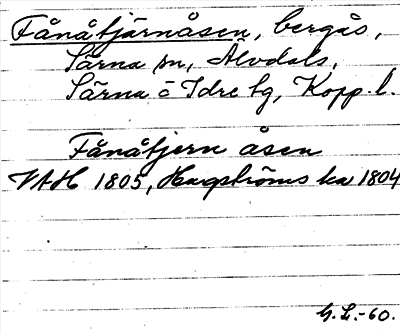 Fånåtjärnåsen, bergås,
Särna sn, Älvdals,
Särna o Idre tg, Kopp. l.
Fånåtjern åsen
VAH 1805, Hagströms ka 1804
G.L.-60.